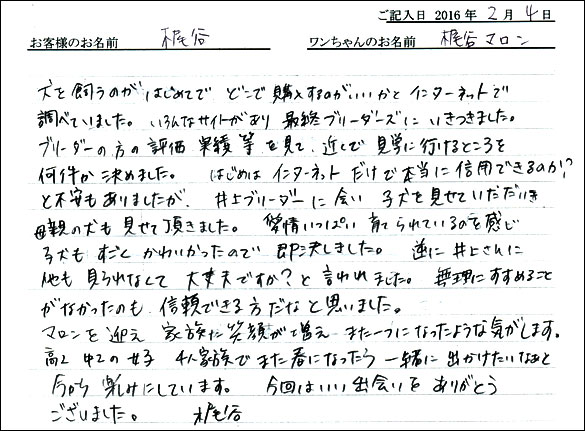 ご記入日 2016年 2月 4日
お客様のお名前 梶谷 ワンちゃんのお名前 梶谷マロン
犬を飼うのがはじめてで どこで購入するのがいいかとインターネットで
調べていました。いろんなサイトがあり 最終ブリーダーズにいきつきました。
ブリーダーの方の評価 実績 等を見て、近しで見学に行けるところを
何件か決めました。 はじめはインターネットだけで本当に信用できるのか!?
と不安もありましたが、井上ブリーダーに会い 子犬を見せていただいき
母親の犬も見せて頂きました。 愛情いっぱい育てられているのを感じ
子犬もすごくかわいかったので 即決しました。 逆に井上さんに
他も見られなくて大丈夫ですか?と言われました。無理にすすめること
がなかったのも、信頼できる方だなと思いました。
マロンを迎え 家族に笑顔が増え また一つになったような気がします。
高2 中2の女子 4人家族でまた春になったら一緒に出かけたいなぁと
今から楽しみにしています。 今回はいい出会いを ありがとう
ございました。 梶谷